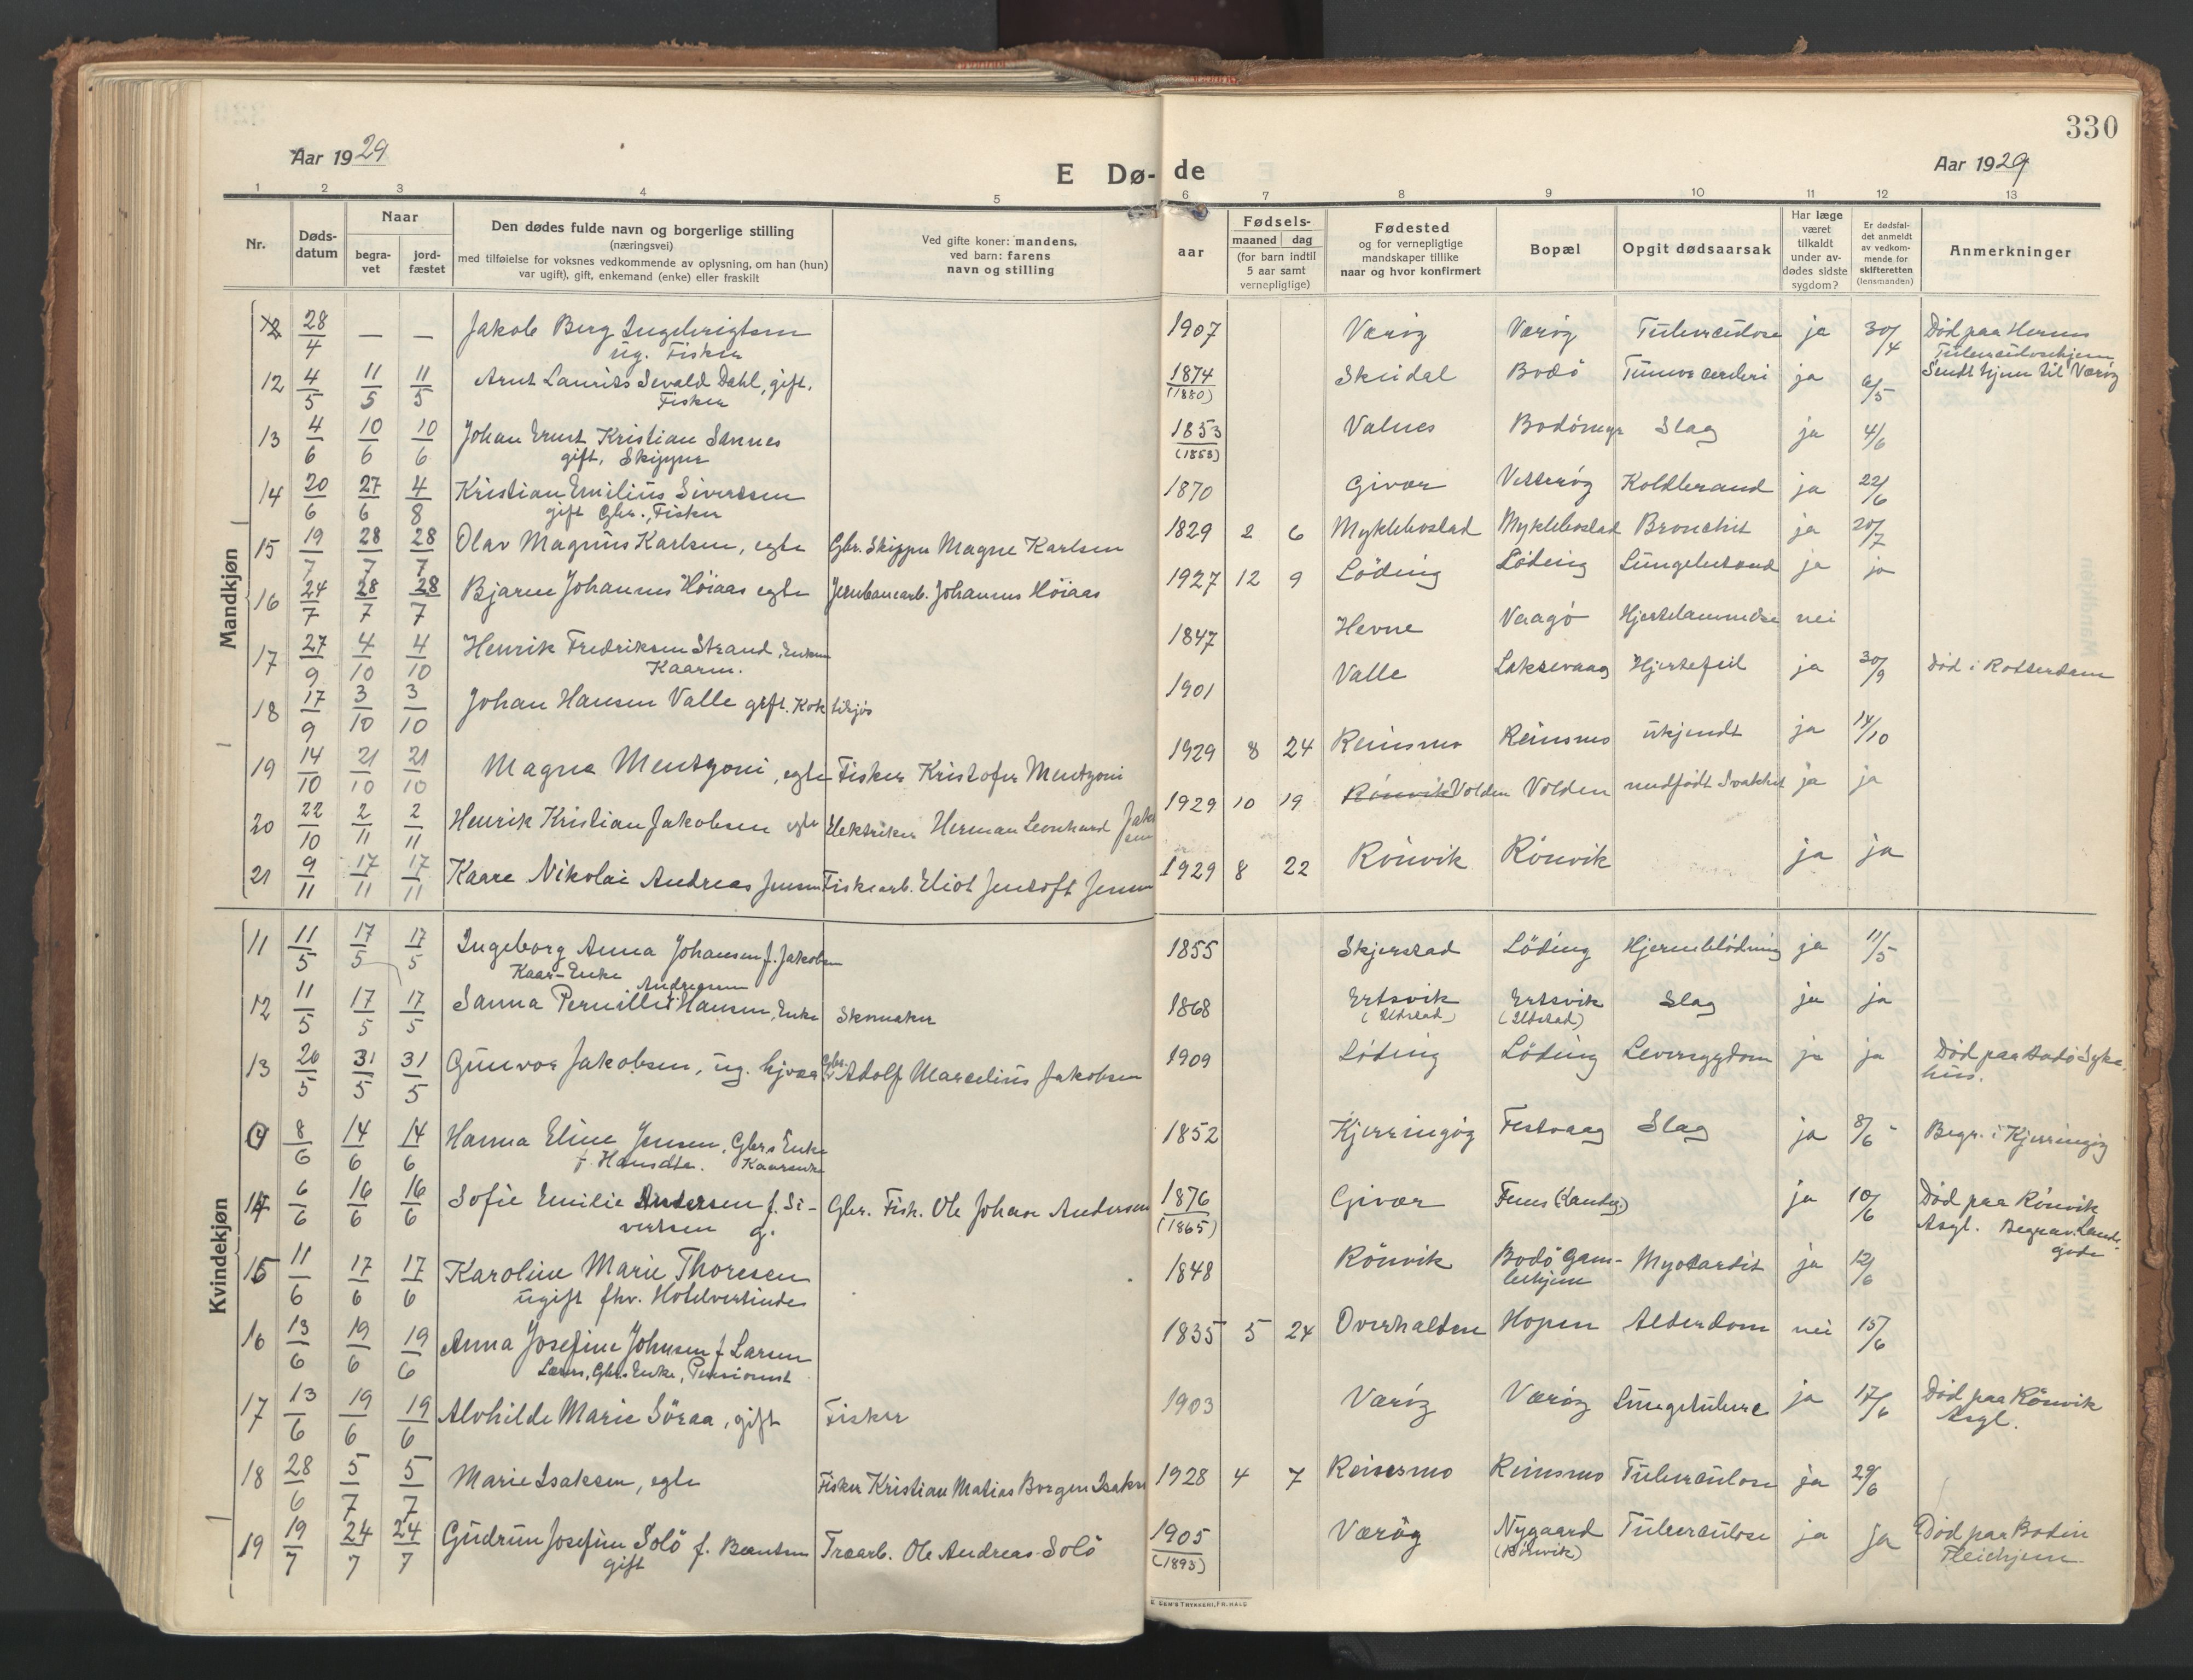 330
Aar 1929
E Dø-de
Aar 1929
1 2 3 4 5 6 7 8 9 10 11 12 13
Nr.
Døds-
datum
Naar
begra-
vet
jord-
fæstet
Den dødes fulde navn og borgerlige stilling
(næringsvei)
med tilføielse for voksnes vedkommende av oplysning, om han (hun)
var ugift), gift, enkemand (enke) eller fraskilt
Ved gifte koner: mandens,
ved barn: farens
navn og stilling
aar
Fødsels-
maaned dag
(for barn indtil
5 aar samt
vernepligtige)
Fødested
og for vernepligtige
mandskaper tillike
naar og hvor konfirmert
Bopæl
Opgit dødsaarsak
Har læge
været
tilkaldt
under av-
dødes sidste
sygdom?
Er dødsfal-
det anmeldt
av vedkom-
mende for
skifteretten
(lensmanden)
Anmerkninger
Mandkjøn
28/4 — — Jakob Berg Ingebrigtsen 1907 Værøy Værøy Tuberculose ja 30/4 Død paa Hernes
ug. Fisker Tuberculosehjem
12 4/5 11/5 11/5 Arnt Laurits Sevald Dahl, gift. 1874 Skeidal Bodö ja 6/5 Sendt hjem til Værøy
Fisker (1880)
13 4/6 10/6 10/6 Johan Ernst Kristian Sannes 1853 Valnes Slag ja 4/6
gift, Skipper (1853)
14 20/6 27/6 4/8 Kristian Emilius Sivertsen 1870 Givær Vetterøy Koldbrand ja 22/6
gift Gbr., Fisker
15 19/7 28/7 28/7 Olav Magnus Karlsen, egte Gbr. Skipper Magne Karlsen 1829 2 6 Myklebostad Myklebostad Bronchit ja 20/7
16 24/7 28/7 28/7 Bjarne Johannes Höiaas egte Jernbanearb. Johannes Höiaas 1927 12 9 Löding Löding Lungebetænd ja ja
17 27/9 4/10 4/10 Henrik Fredriksen Strand, Enkem 1847 Hevne Vaagö Hjertelammelse nei
Kaarm.
18 17/9 3/10 3/10 Johan Hansen Valle gift. Kok tilsjøs 1901 Valle Laksevaag Hjertefeil ja 30/9 Död i Rotterdam
19 14/10 21/10 21/10 Magne Mentzoni, egte Fisker Kristofer Mentzoni 1929 8 24 Reinsmo Reinsmo ukjendt ja 14/10
20 22/10 2/11 2/11 Henrik Kristian Jakobsen egte Elektriker Herman Leonhard Jakob 1929 10 19 Rönvik Volden Volden medfödt Svakhet ja ja
sen
21 9/11 17/11 17/11 Kaare Nikolai Andreas Jensen Fiskearb. Eliot Jentoft Jensen 1929 8 22 Rönvik Rönvik ja ja
Kvindekjøn
11 11/5 17/5 17/5 Ingeborg Anna Johansen f. Jakobsen 1855 Skjerstad Löding Hjerneblödning ja 11/5
Kaar-Enke
Andreasen
12 11/5 17/5 17/5 Sanna Pernille Hansen, Enke Skomaker 1868 Ertsvik Ertsvik Slag ja ja
(Seltstad) (Seltstad)
13 20/5 31/5 31/5 Gunvor Jakobsen, ug. hjvær Gbr. Adolf Marcelius Jakobsen 1909 Löding Löding Leversygdom ja ja Död paa Bodö Syke-
hus.
8/6 14/6 14/6 Hanna Eline Jensen, Gbr.s Enke 1852 Kjerringøy Festvaag Slag ja 8/6 Begr. i Kjerringøy
f. Hansdtr. Kaarenke
14 6/6 16/6 16/6 Sofie Emilie Andersen f. Si- Gbr. Fisk. Ole Johan Andersen 1876 Givær Fenes (Landeg.) ja 10/6 Död paa Rönvik
vertsen g. (1865) Asyl. Begrav. Lande-
gode
15 11/6 17/6 17/6 Karoline Marie Thoresen 1848 Rönvik Bodö Gam- Myocardit ja 12/6
ugift fhv. Hotelvertinde lehjem
16 13/6 19/6 19/6 Anna Josefine Johnsen f. Larsen 1835 5 24 Overhalden Hopen Alderdom nei 15/6
Lærer, Gbr.s Enke, Pensionist
17 13/6 19/6 19/6 Alvhilde Marie Söraa, gift Fisker 1903 Værøy Værøy Lungetuberc ja 17/6 Död paa Rönvik
Asyl.
18 28/6 5/7 5/7 Marie Isaksen, egte Fisker Kristian Matias Borgen Isaksen 1928 4 7 Reinsmo Reinsmo Tuberculose ja 29/6
19 19/7 24/7 24/7 Gudrun Josefine Solö f. Berntsen Træarb. Ole Andreas Solö 1905 Værøy Nygaard Tuberculose ja ja Död paa Bodin
gift (1893) (Rönvik) Pleiehjem
E. SEM'S TRYKKERI, FR.HALD